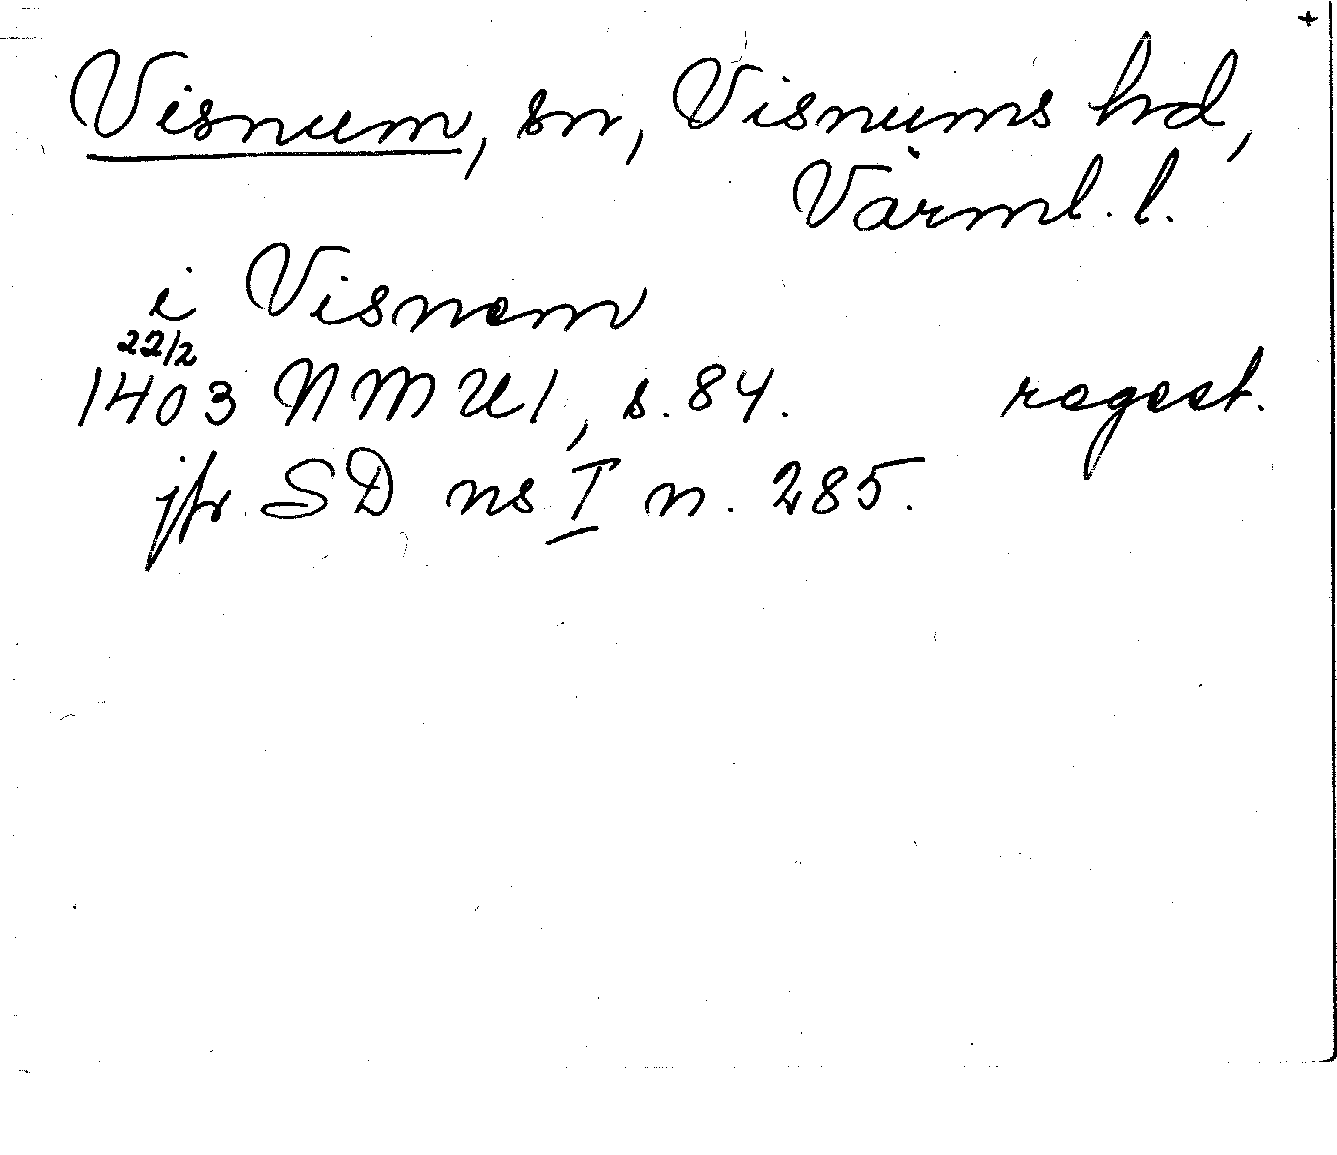 +
Visnum, sn, Visnums hd,
Värml. l.
i Visnem
22/2
1403 NMU1, s. 84. regest.
jfr SD ns I n. 285.